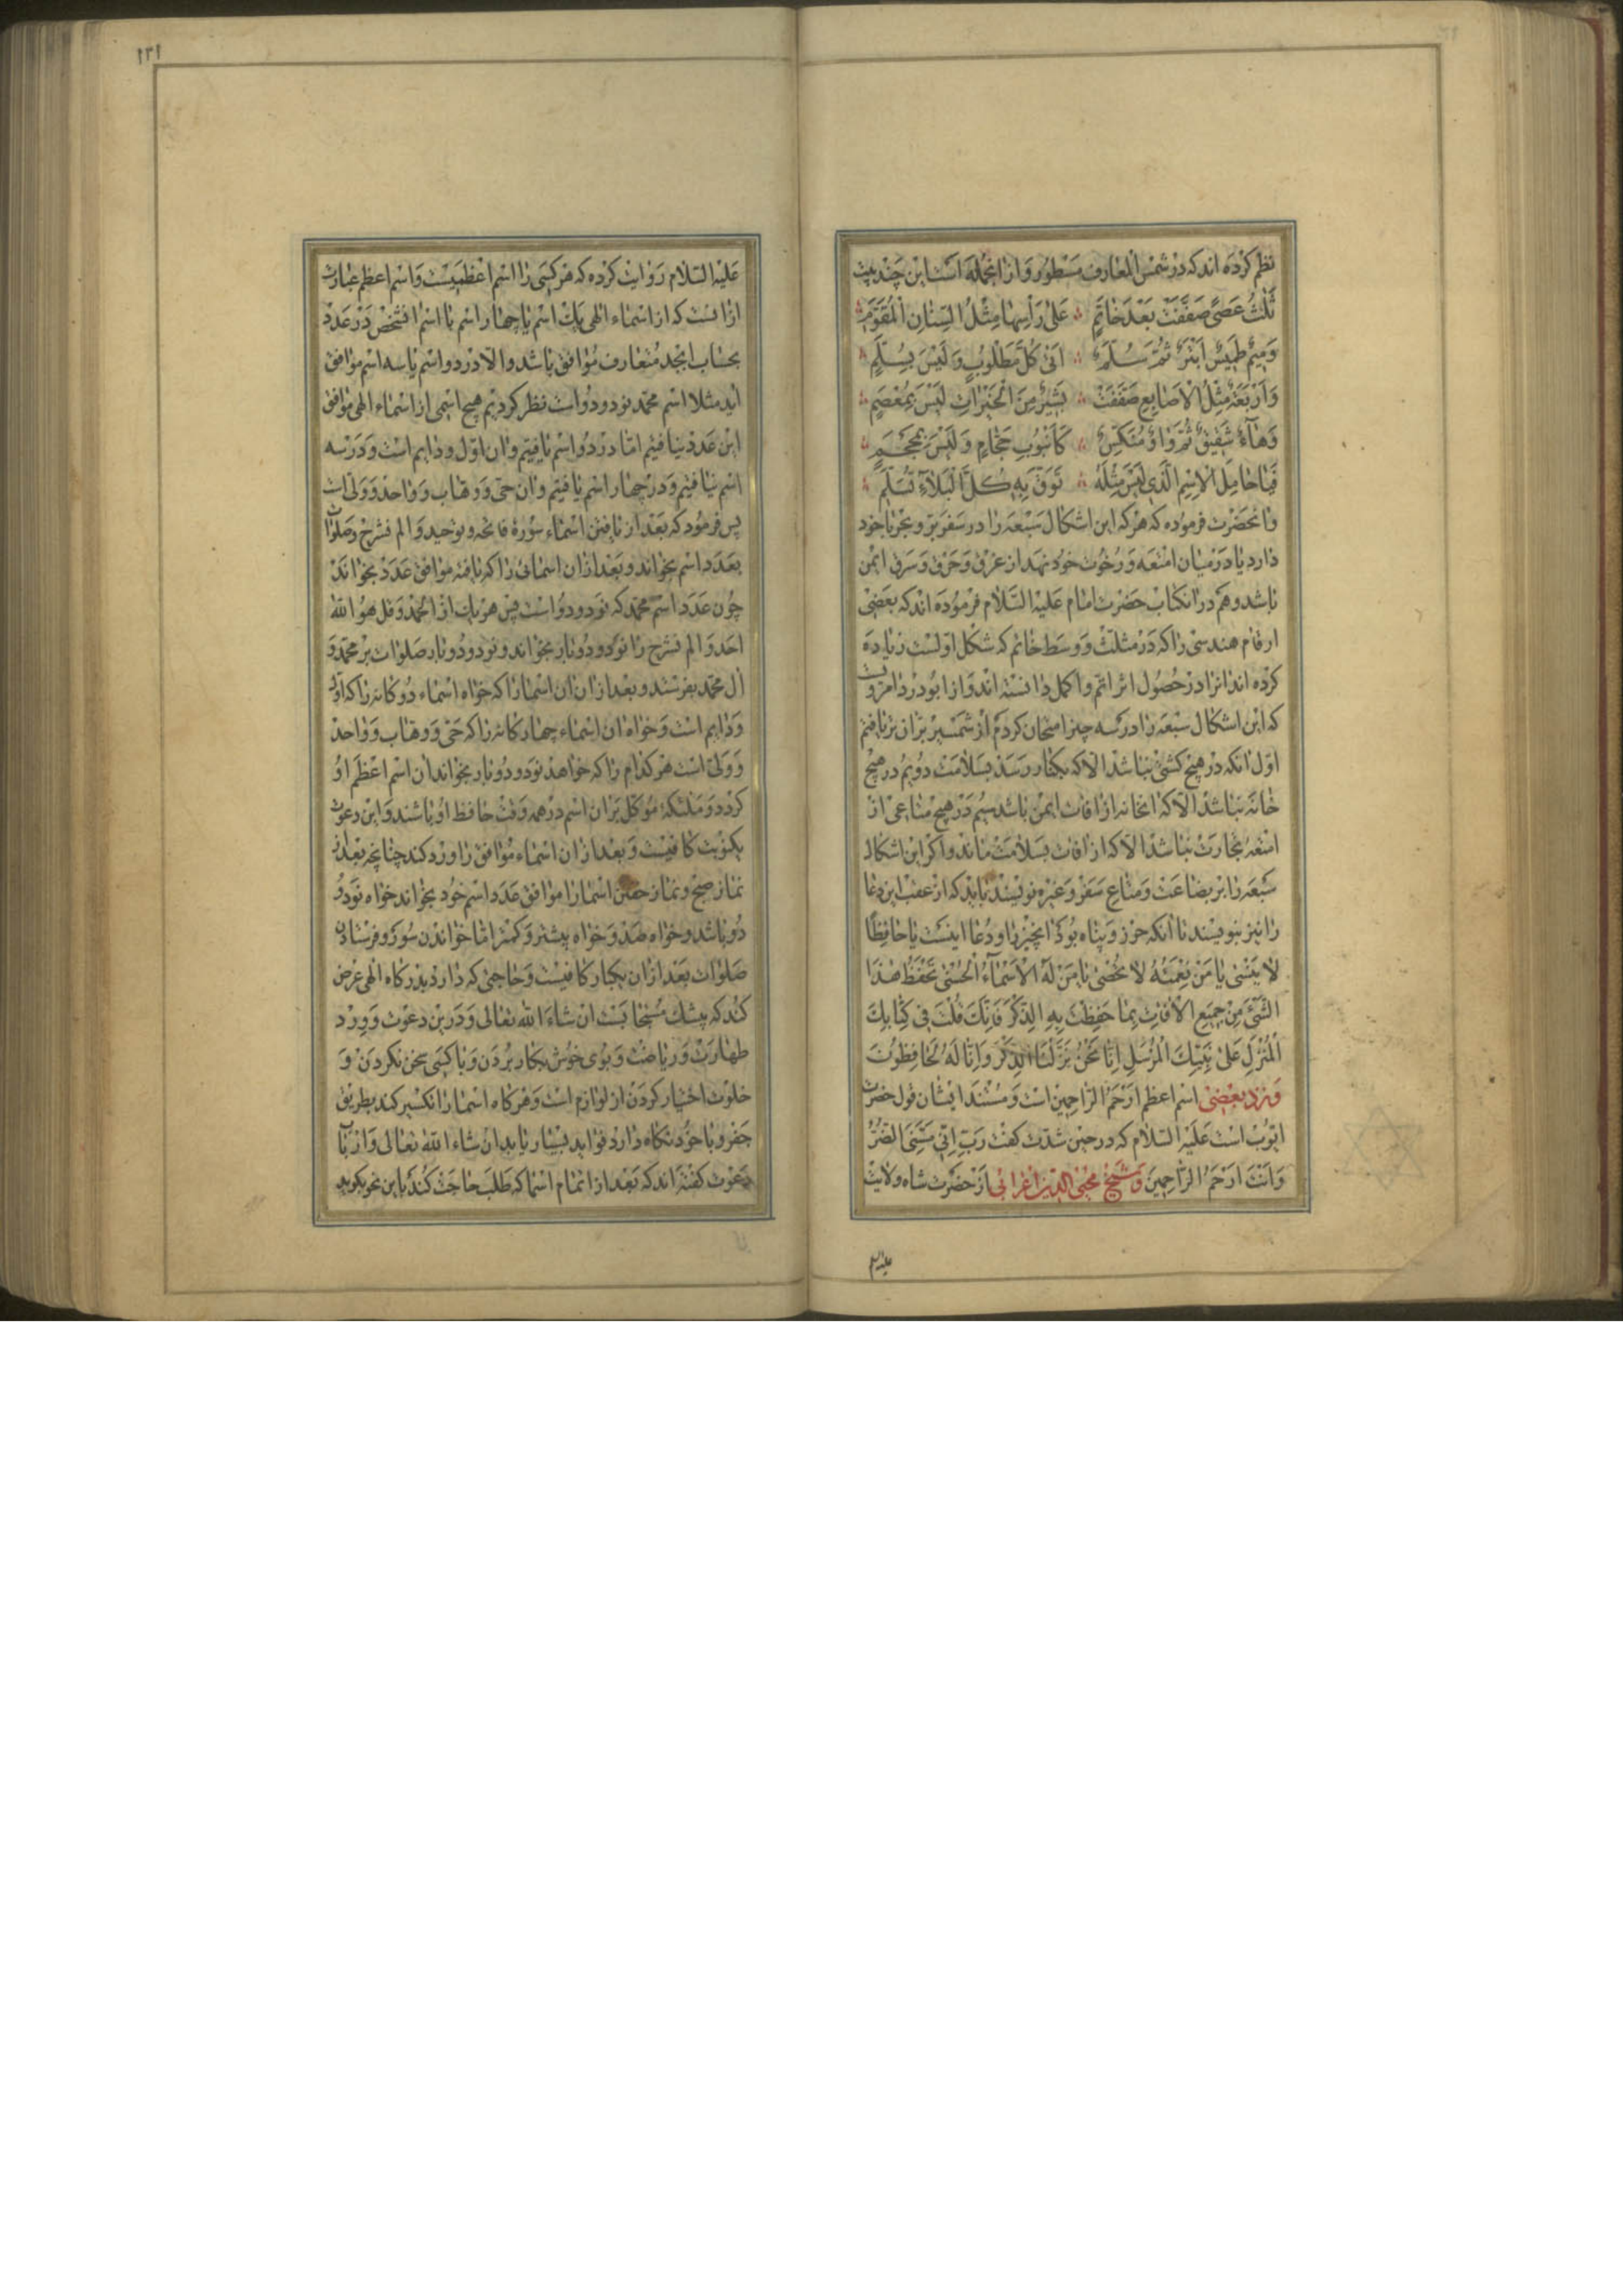 نظم کرده اند که در شمس المعارف مسطور و از انجمله است این چند بیت
ثلث عصی صففت بعد خاتم ؞ علی راسها مثل السنان المقوم
ومیم طمیس ابتر ثم سلم ؞ الی کل مطلوب و لیس بسلم
واربعة مثل الاصابع صففت ؞ تشیر من الخیرات لیس بمعصم
وهاء شقیق ثم واو منکس ؞ کانبوب حجام و لیس بمحجم
فیا حامل الاسم الذی لیس مثله ؞ توق به کل البلاء تسلم
وانحضرت فرموده که هرکه این اشکال سبعه را در سفر بر و بحر با خود
دارد یا در میان امتعه و رخوت خود نهد از غرق و حرق و سرق ایمن
باشد و هم در انکتاب حضرت امام علیه السلام فرموده اند که بعضی
ارقام هندسی را که در مثلث و وسط خاتم که شکل اولست زیاده
کرده اند انرا در حصول اثر اتم و اکمل دانسته اند و از ابو دردا مرویت
که این اشکال سبعه را در سه چیز امتحان کردم از شمشیر بران تر یافتم
اول انکه در هیچ کشتی نباشد الا که بکنار رسد بسلامت دویم در هیچ
خانه نباشد الا که انخانه از افات ایمن باشد سیم در هیچ متاعی از
امتعه تجارت نباشد الا که از افات بسلامت ماند و اکر این اشکال
سبعه را بر بضاعت و متاع سفر و غیره نویسند باید که از عقب این دعا
را نیز بنویسند تا انکه حرز و پناه بود انچیز را و دعا اینست یا حافظا
لا ینسی یا من نعمته لا تحصی یا من له الاسماء الحسنی تحفظ هذا
الشیء من جمیع الافات بما حفظت به الذکر فانک قلت فی کتابک
المنزل علی نبیک المرسل انا نحن نزلنا الذکر و انا له لحافظون
و نزد بعضی اسم اعظم ارحم الراحمین است و مستند ایشان قول حضرت
ایوب است علیه السلام که در حین شدت کفت رب انی مسنی الضر
وانت ارحم الراحمین و شیخ محیی الدین اعرابی از حضرت شاه ولایت
علیه السلم
۱۳۱
علیه السلام روایت کرده که هر کسی را اسم اعظمیست و اسم اعظم عبارت
ازانست که از اسماء الهی یک اسم یا چهار اسم با اسم انشخص در عدد
بحساب ابجد متعارف موافق باشد و الا در دو اسم یا سه اسم موافق
اید مثلا اسم محمد نود و دو است نظر کردیم هیچ اسمی از اسماء الهی موافق
این عدد نیافتیم اما در دو اسم یافتیم و ان اول و دایم است و در سه
اسم نیافتیم و در چهار اسم یافتیم و ان حی و وهاب و واحد و ولی است
پس فرمود که بعد از یافتن اسماء سوره فاتحه و توحید و الم نشرح و صلوات
بعدد اسم بخواند و بعد ازان اسمائی را که یافته موافق عدد بخواند
چون عدد اسم محمد که نود و دو است پس هر یک از الحمد و قل هو الله
احد و الم نشرح را نود و دو بار بخواند و نود و دو بار صلوات بر محمد و
ال محمد بفرستد و بعد ازان ان اسما را که خواه اسماء دوکانه را که اول
و دایم است و خواه ان اسماء چهارکانه را که حی و وهاب و واحد
و ولی است هر کدام را که خواهد نود و دو بار بخواند ان اسم اعظم او
کردد و ملئکه موکل بران اسم در همه وقت حافظ او باشند و این دعوت
یکنوبت کافیست و بعد ازان اسماء موافق را ورد کند چنانچه بعد از
نماز صبح و نماز خفتن اسما را موافق عدد اسم خود بخواند خواه نود و
دو باشد و خواه صد و خواه بیشتر و کمتر اما خواندن سور و فرستادن
صلوات بعد ازان یکبار کافیست و حاجتی که دارد بدرکاه الهی عرض
کند که بیشک مستجابست ان شاء الله تعالی و در این دعوت و ورد
طهارت و ریاضت و بوی خوش بکار بردن و با کسی سخن نکردن و
خلوت اختیار کردن از لوازم است و هرکاه اسما را تکسیر کند بطریق
جفر و با خود نکاه دارد فواید بسیار یابد ان شاء الله تعالی و ارباب
دعوت کفته اند که بعد از اتمام اسما که طلب حاجت کند باین نحو بکوید